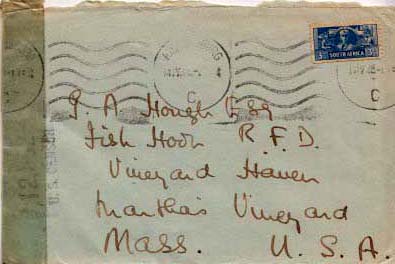 SOUTH AFRICA
C
C
G. A Hough Esq
Fish Hook R. F. D.
Vineyard Haven
Martha's Vineyard
Mass. U. S. A.